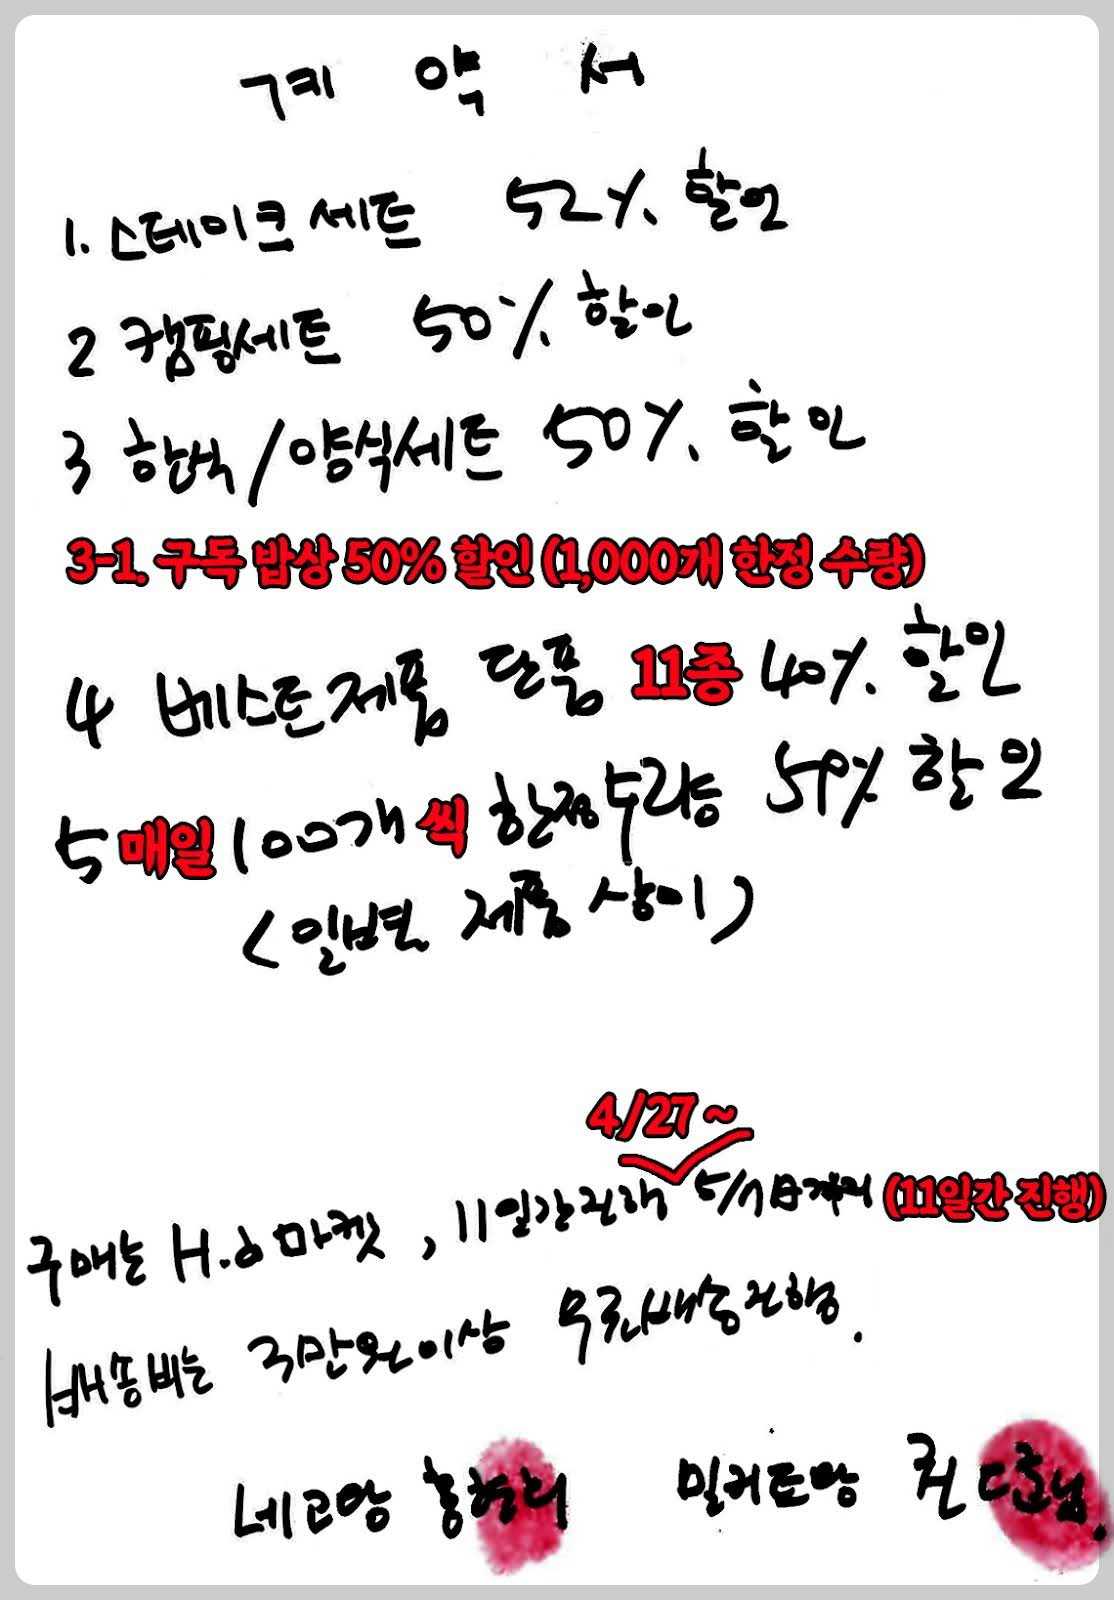 계 약 서
1. 스테이크 세트 52% 할인
2 캠핑세트 50% 할인
3 한식/양식세트 50% 할인
3-1. 구독 밥상 50% 할인 (1,000개 한정 수량)
4 베스트제품 단품 11종 40% 할인
5 매일 100개 씩 한정수량 59% 할인
(일별 제품 상이)
4/27 ~
구매는 마켓, 11일간진행 5/7日까지 (11일간 진행)
배송비는 3만원이상 무료배송진행.
네고왕 홍현희 밀키트왕